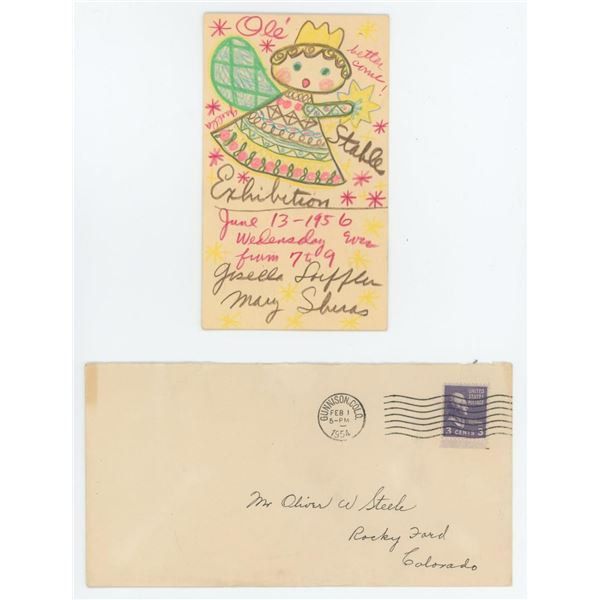 Olé
better
come!
Gisella
Stable
Exhibition
June 13-1956
Wedensday Eve
from 7 to 9
Gisella Loeffler
Mary Sheras
GUNNISON, COLO.
FEB 1
5-PM
1954
UNITED
STATES
POSTAGE
3 CENTS 3
Mr Oliver W Steele
Rocky Ford
Colorado